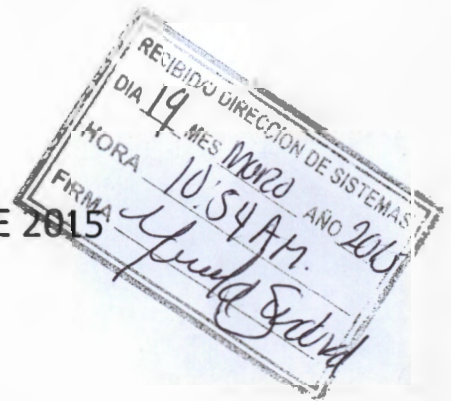 RECIBIDO DIRECCION DE SISTEMAS
DIA 19 MES Marzo AÑO 2015
HORA 10:54 AM.
FIRMA
E 2015